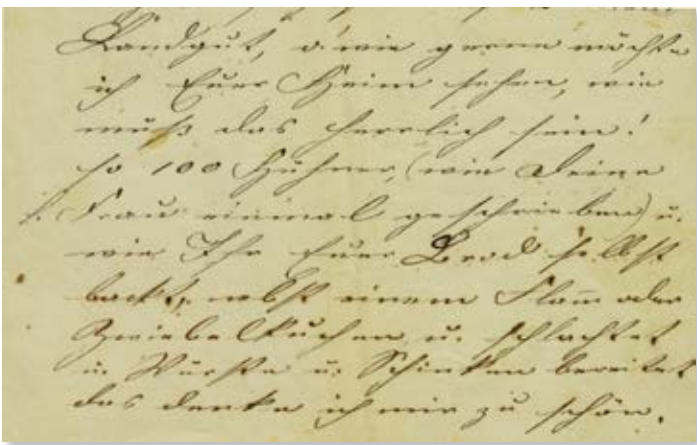 Landgut, o wie gerne möchte
ich Euer Heim sehen, wie
muß das herrlich sein!
so 100 Hühner, (wie Deine
l. Frau einmal geschrieben) u.
wie Ihr Euer Brod selbst
backt, nebst einem Flam̄ oder
Zwiebelkuchen u. schlachtet
u. Würste u. Schinken bereitet
das denke ich mir zu schön.